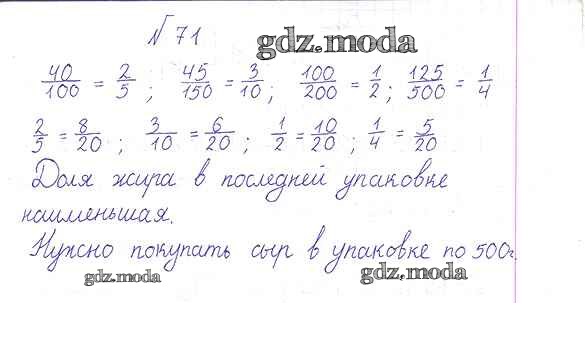 № 71
gdz.moda
40/100 = 2/5 ; 45/150 = 3/10 ; 100/200 = 1/2 ; 125/500 = 1/4
2/5 = 8/20 ; 3/10 = 6/20 ; 1/2 = 10/20 ; 1/4 = 5/20
Доля жира в последней упаковке
наименьшая.
Нужно покупать сыр в упаковке по 500г.
gdz.moda
gdz.moda